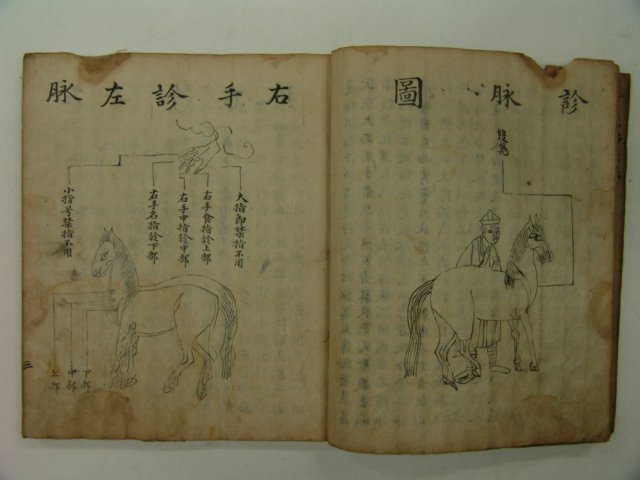 診脉圖
雙鳧
右手診左脉
大指郎禁指不用
右手食指診上部
右手中指診中部
右手名指診下部
小指号禁指不用
下部
中部
上部
三